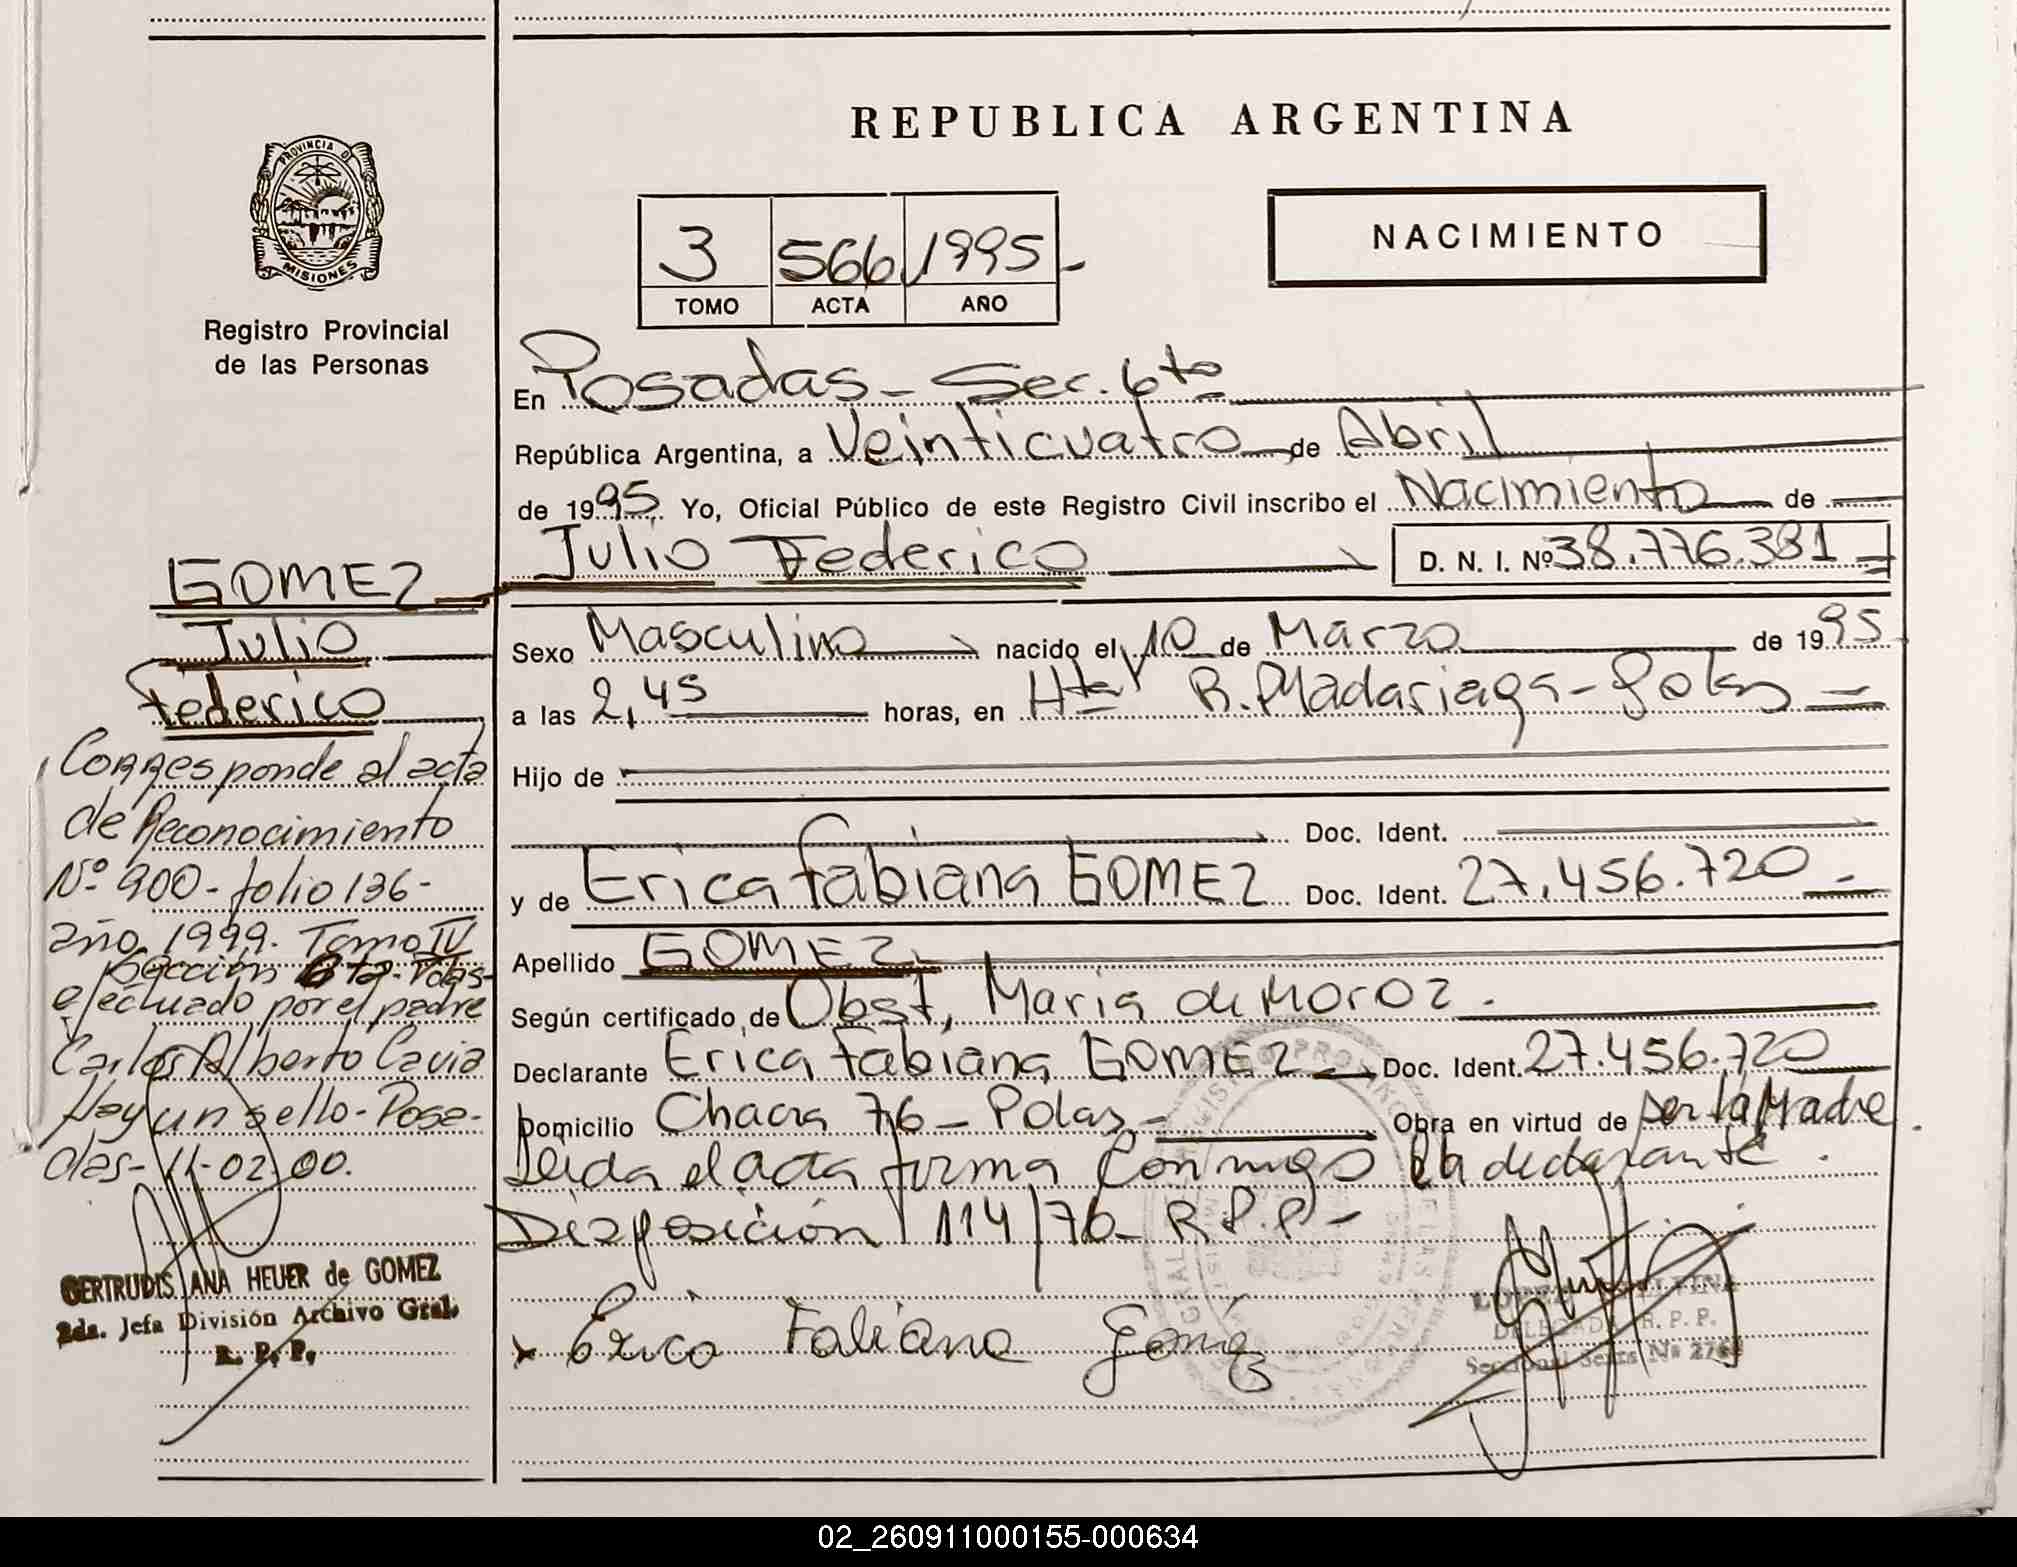 REPUBLICA ARGENTINA
PROVINCIA DE
MISIONES
Registro Provincial
de las Personas
3 566 1995-
TOMO ACTA AÑO
NACIMIENTO
En Posadas - Sec. 6ta
República Argentina, a Veinticuatro de Abril
de 1995 Yo, Oficial Público de este Registro Civil inscribo el Nacimiento de
Julio Federico D. N. I. Nº 38.776.381
Sexo Masculino nacido el 10 de Marzo de 1995
a las 2,45 horas, en R. Madariaga -
Hijo de
Doc. Ident.
y de Erica Fabiana GOMEZ Doc. Ident. 27.456.720 -
Apellido GOMEZ
Según certificado de Obst, Maria de Moroz.
Declarante Erica Fabiana GOMEZ Doc. Ident. 27.456.720
Domicilio Chacra 76 - Pdas - Obra en virtud de ser la Madre.
Leida el acta firma conmigo la declarante.
Disposición 114/76 - R.P.P -
x Erica Fabiana Gómez
DELEGADA R. P. P.
Seccional Sexta
GOMEZ
Julio
Federico
Corresponde al acta
de Reconocimiento
Nº 900 - folio 136 -
año 1999. Tomo IV
Sección 6ta - Pdas -
efectuado por el padre
Carlos Alberto Cavia
Hay un sello - Posa-
das - 11-02-00.
GERTRUDIS ANA HEUER de GOMEZ
2da. Jefa División Archivo Gral.
R. P. P.
02_260911000155-000634